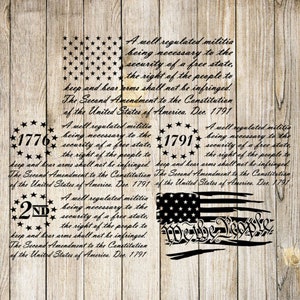 A well regulated militia
being necessary to the
security of a free state,
the right of the people to
keep and bear arms shall not be infringed
The Second Amendment to the Constitution
of the United States of America. Dec. 1791
1776
A well regulated militia
being necessary to the
security of a free state,
the right of the people to
keep and bear arms shall not be infringed
The Second Amendment to the Constitution
of the United States of America. Dec. 1791
1791
A well regulated militia
being necessary to the
security of a free state,
the right of the people to
keep and bear arms shall not be infringed
The Second Amendment to the Constitution
of the United States of America. Dec. 1791
2ND
A well regulated militia
being necessary to the
security of a free state,
the right of the people to
keep and bear arms shall not be infringed
The Second Amendment to the Constitution
of the United States of America. Dec. 1791
We the People